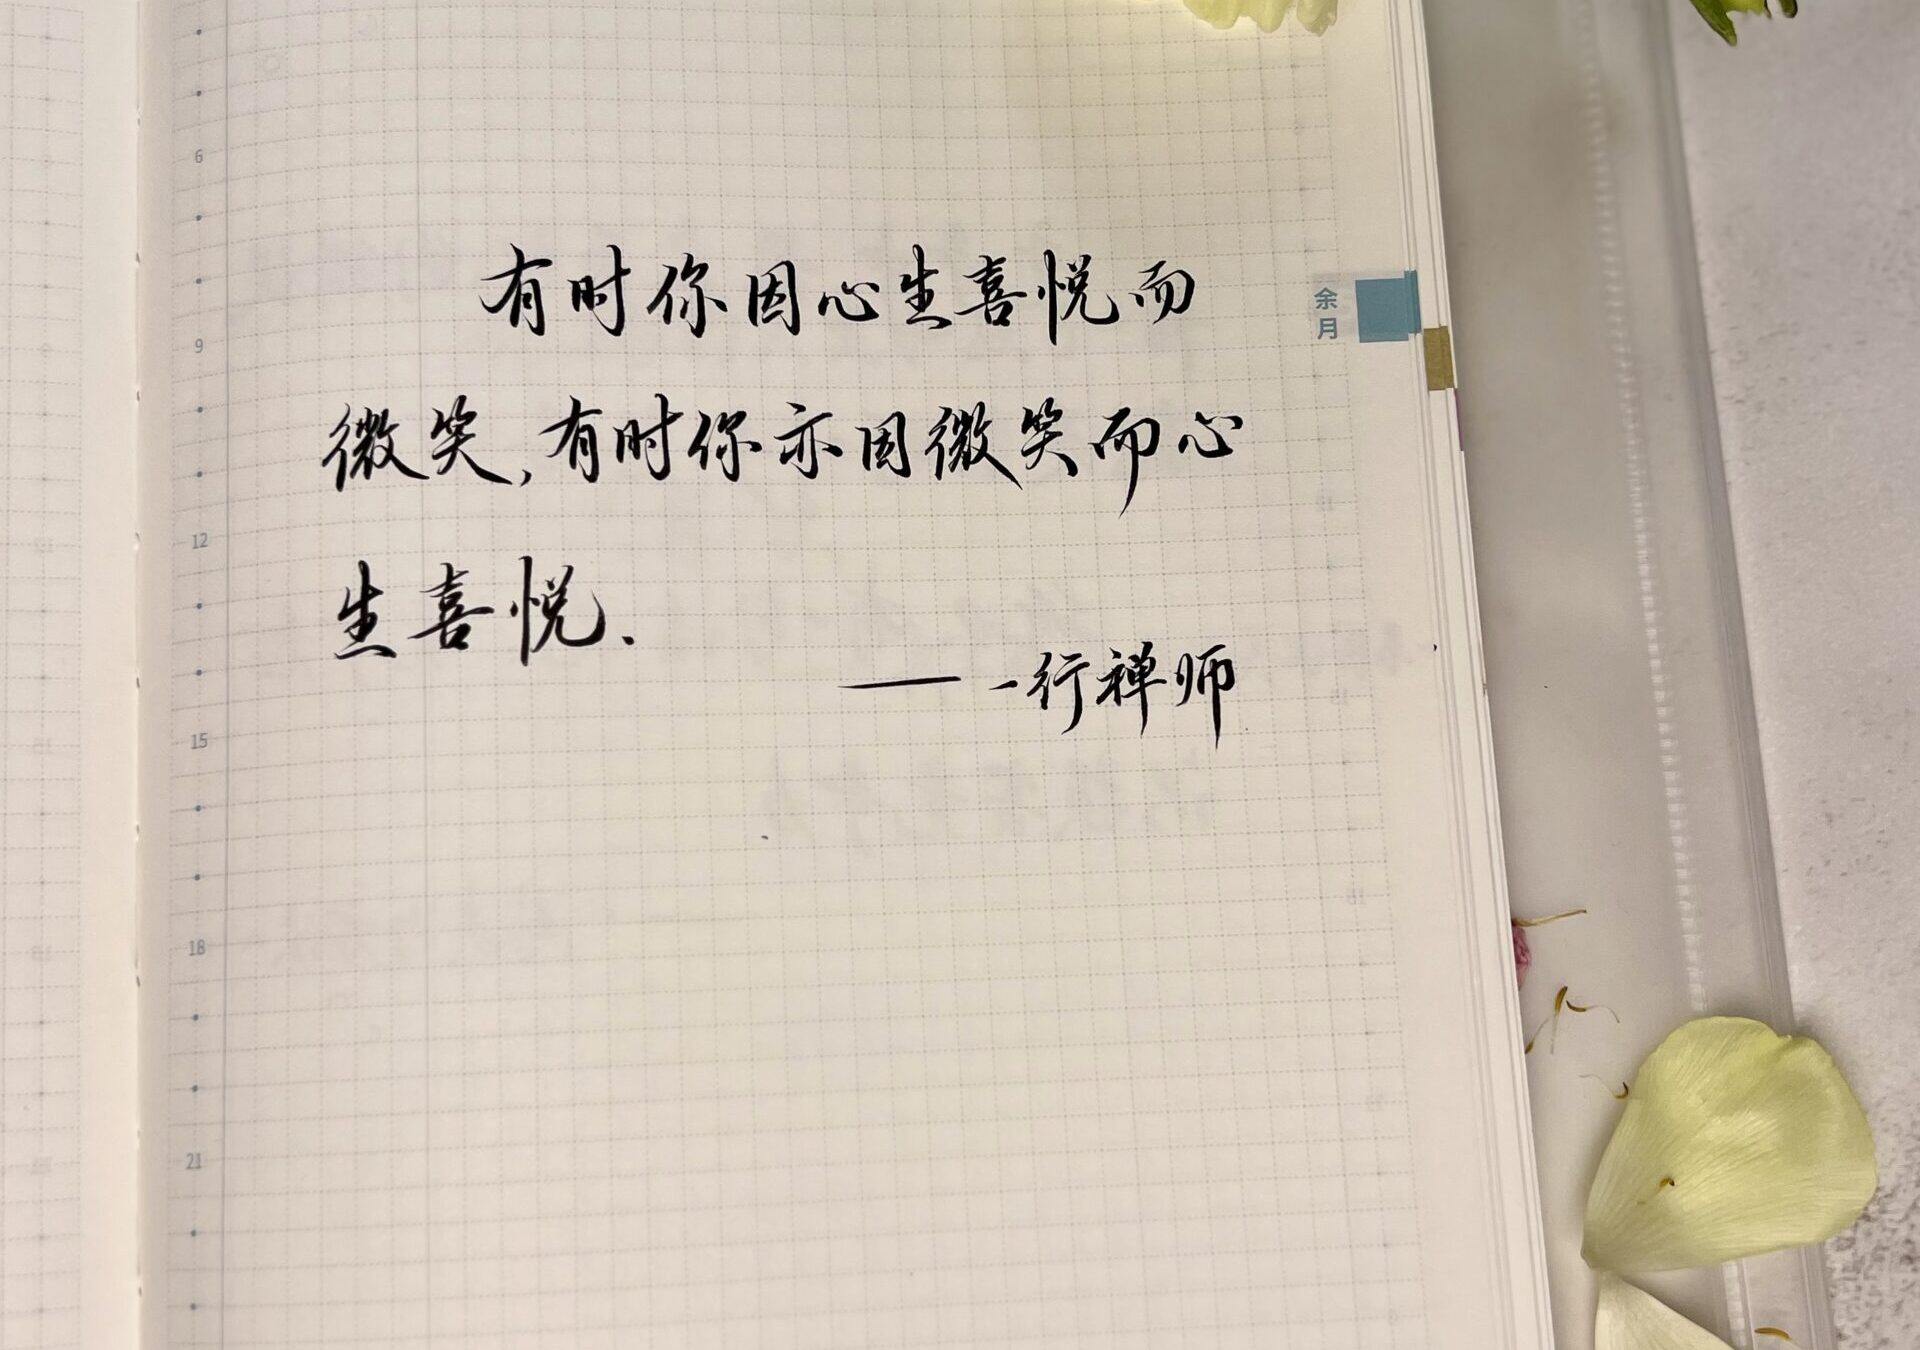 有时你因心生喜悦而
微笑,有时你亦因微笑而心
生喜悦.
——一行禅师
余月
6
9
12
15
18
21